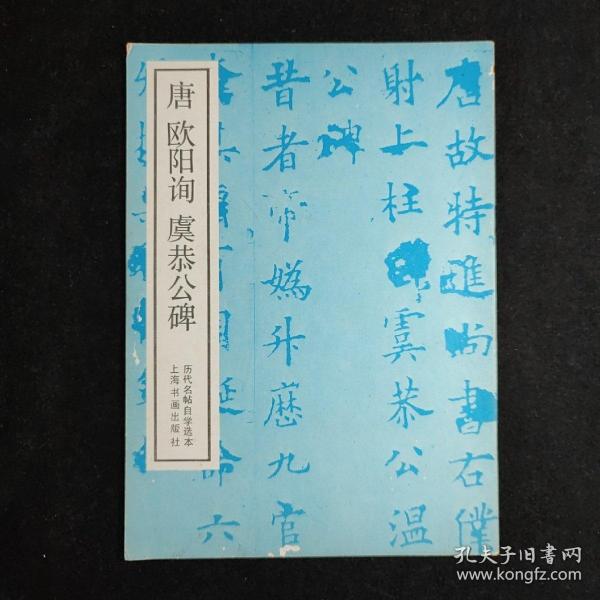 唐 欧阳询 虞恭公碑
历代名帖自学选本
上海书画出版社
唐故特進尚書右僕
射上柱國虞恭公温
公碑
昔者帝媯升歷九官
命六
孔夫子旧书网
www.kongfz.com